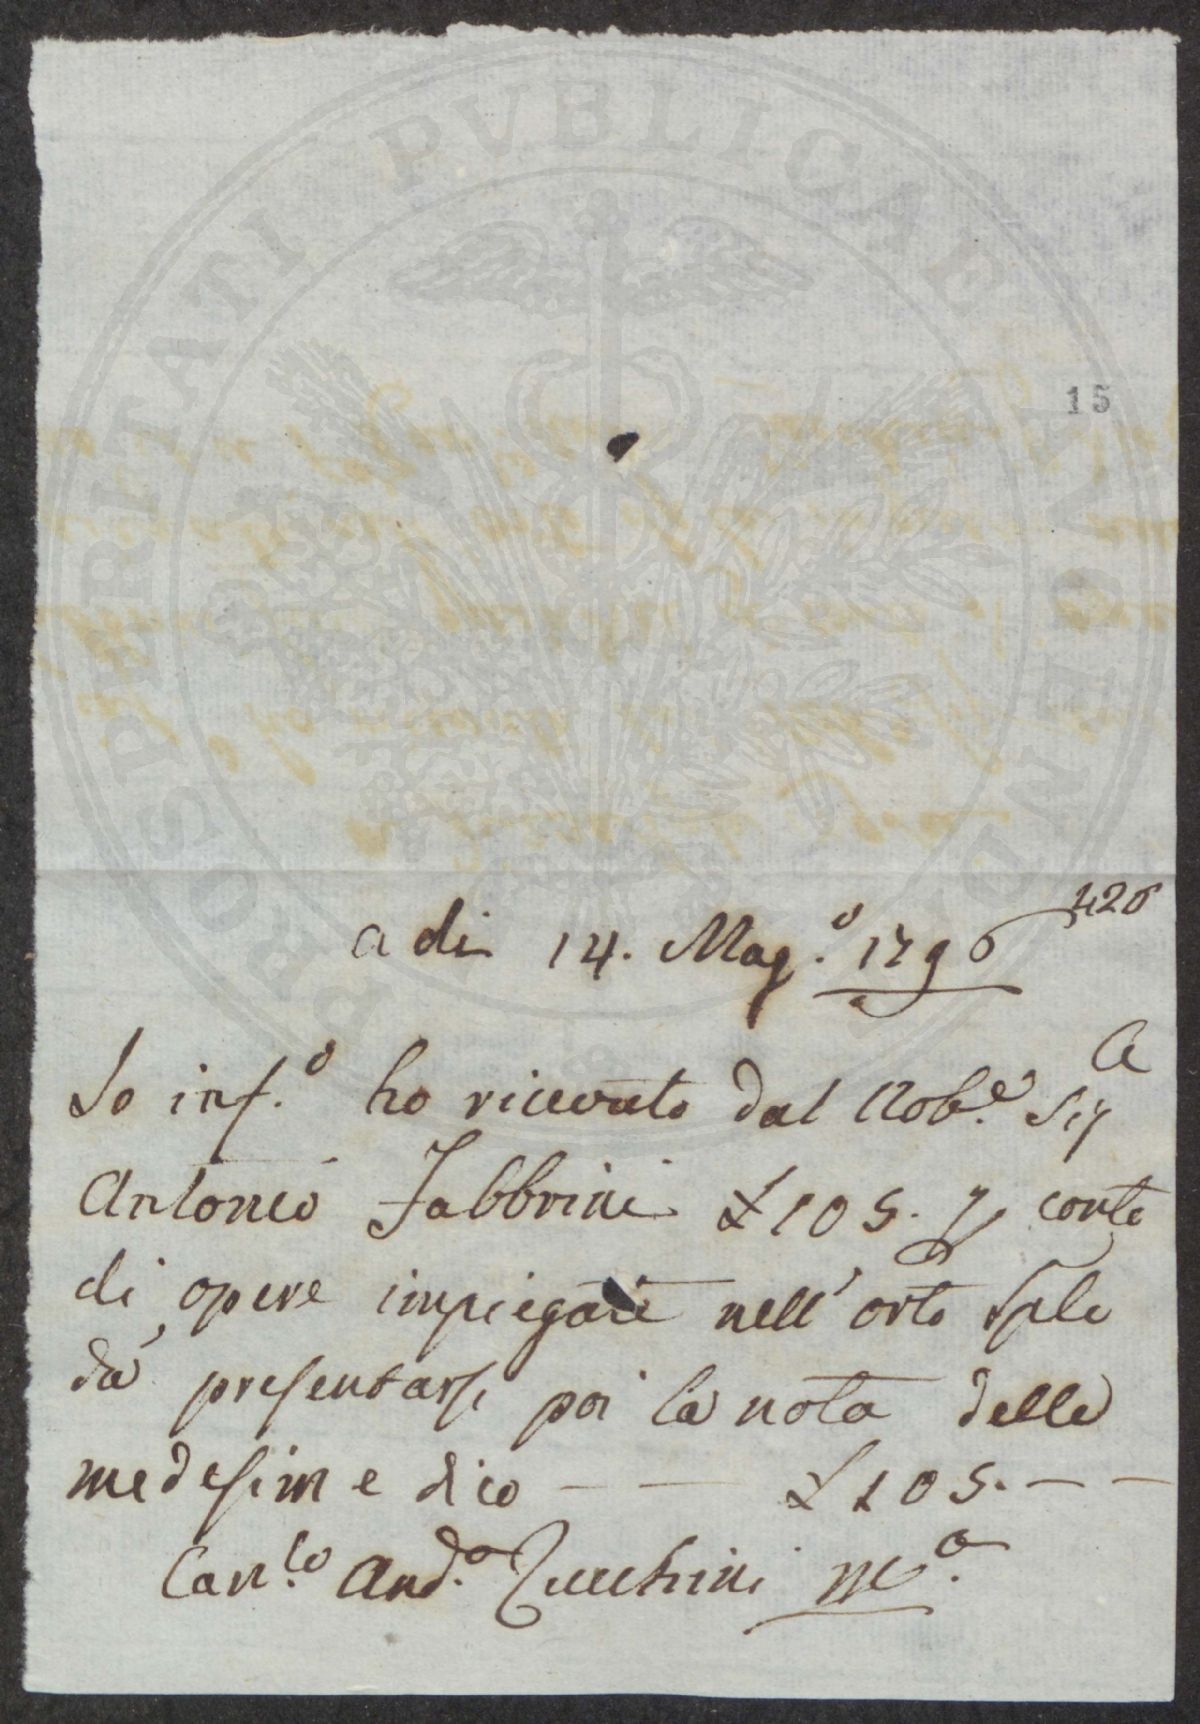 PROSPERITATI PVBLICAE AVGENDAE
15
426
a di 14. Mag.o 1796
Io inf.o ho ricevuto dal Nob.e Sig
Antonio Fabbrini £ 105. p conto
di opere impiegate nell' orto Sple
da presentarsi poi la nota delle
medesime dico — — £ 105. — —
Can.co And.a Zucchini M.o